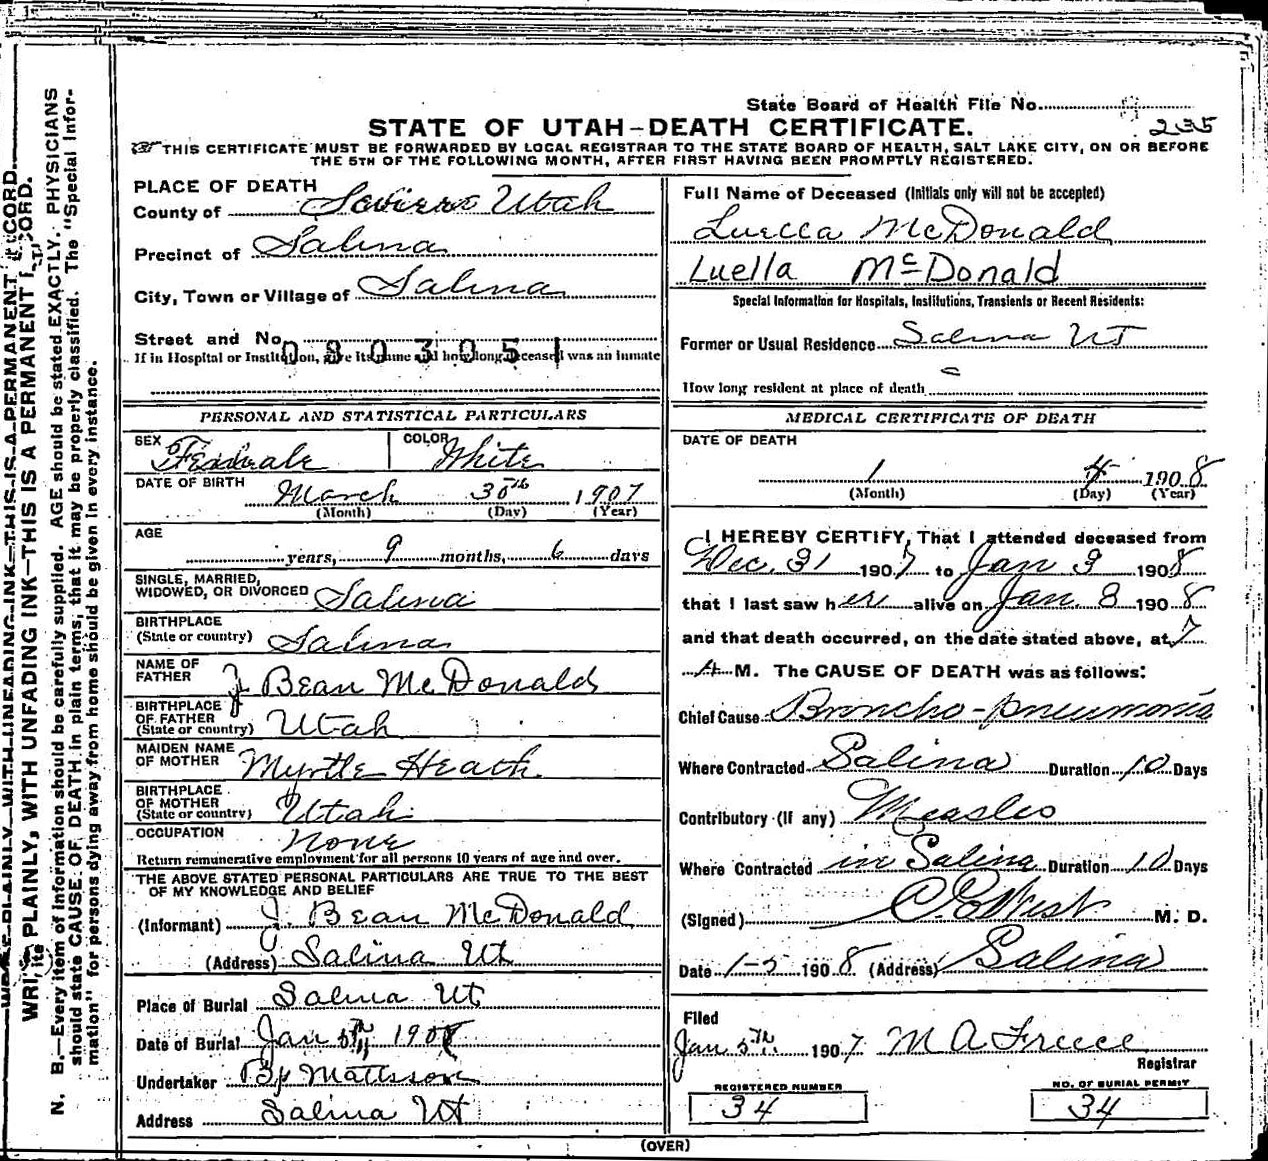 State Board of Health File No.
235
STATE OF UTAH-DEATH CERTIFICATE.
THIS CERTIFICATE MUST BE FORWARDED BY LOCAL REGISTRAR TO THE STATE BOARD OF HEALTH, SALT LAKE CITY, ON OR BEFORE
THE 5TH OF THE FOLLOWING MONTH, AFTER FIRST HAVING BEEN PROMPTLY REGISTERED.
PLACE OF DEATH
County of Utah
Precinct of Salina
City, Town or Village of Salina
Street and No.
080305
If in Hospital or Institution, give its name and how long deceased was an inmate
PERSONAL AND STATISTICAL PARTICULARS
SEX Female COLOR White
DATE OF BIRTH March 30th 1907
(Month) (Day) (Year)
AGE
years, 9 months, 6 days
SINGLE, MARRIED,
WIDOWED, OR DIVORCED Salina
BIRTHPLACE
(State or country) Salina
NAME OF
FATHER J Bean McDonald
BIRTHPLACE
OF FATHER
(State or country) Utah
MAIDEN NAME
OF MOTHER Myrtle Heath
BIRTHPLACE
OF MOTHER
(State or country) Utah
OCCUPATION None
Return remunerative employment for all persons 10 years of age and over.
THE ABOVE STATED PERSONAL PARTICULARS ARE TRUE TO THE BEST
OF MY KNOWLEDGE AND BELIEF
(Informant) J. Bean McDonald
(Address) Salina Ut
Place of Burial Salina Ut
Date of Burial Jan 5th 1908
Undertaker By Mattsson
Address Salina Ut
Full Name of Deceased (Initials only will not be accepted)
Luella McDonald
Luella McDonald
Special Information for Hospitals, Institutions, Transients or Recent Residents:
Former or Usual Residence Salina UT
How long resident at place of death
MEDICAL CERTIFICATE OF DEATH
DATE OF DEATH
1 4 1908
(Month) (Day) (Year)
I HEREBY CERTIFY, That I attended deceased from
Dec. 31 1907 to Jan 3 1908
that I last saw her alive on Jan 3 1908
and that death occurred, on the date stated above, at 7
A M. The CAUSE OF DEATH was as follows:
Chief Cause Broncho-pneumonia
Where Contracted Salina Duration 10 Days
Contributory (If any) Measles
Where Contracted in Salina Duration 10 Days
(Signed) C E West M. D.
Date 1-5 1908 (Address) Salina
Filed
Jan 5th 1907 M A Freece
Registrar
REGISTERED NUMBER
34
NO. OF BURIAL PERMIT
34
(OVER)
WRITE PLAINLY, WITH UNFADING INK—THIS IS A PERMANENT RECORD.
N. B.—Every item of information should be carefully supplied. AGE should be stated EXACTLY. PHYSICIANS
should state CAUSE OF DEATH in plain terms, that it may be properly classified. The "Special Infor-
mation" for persons dying away from home should be given in every instance.